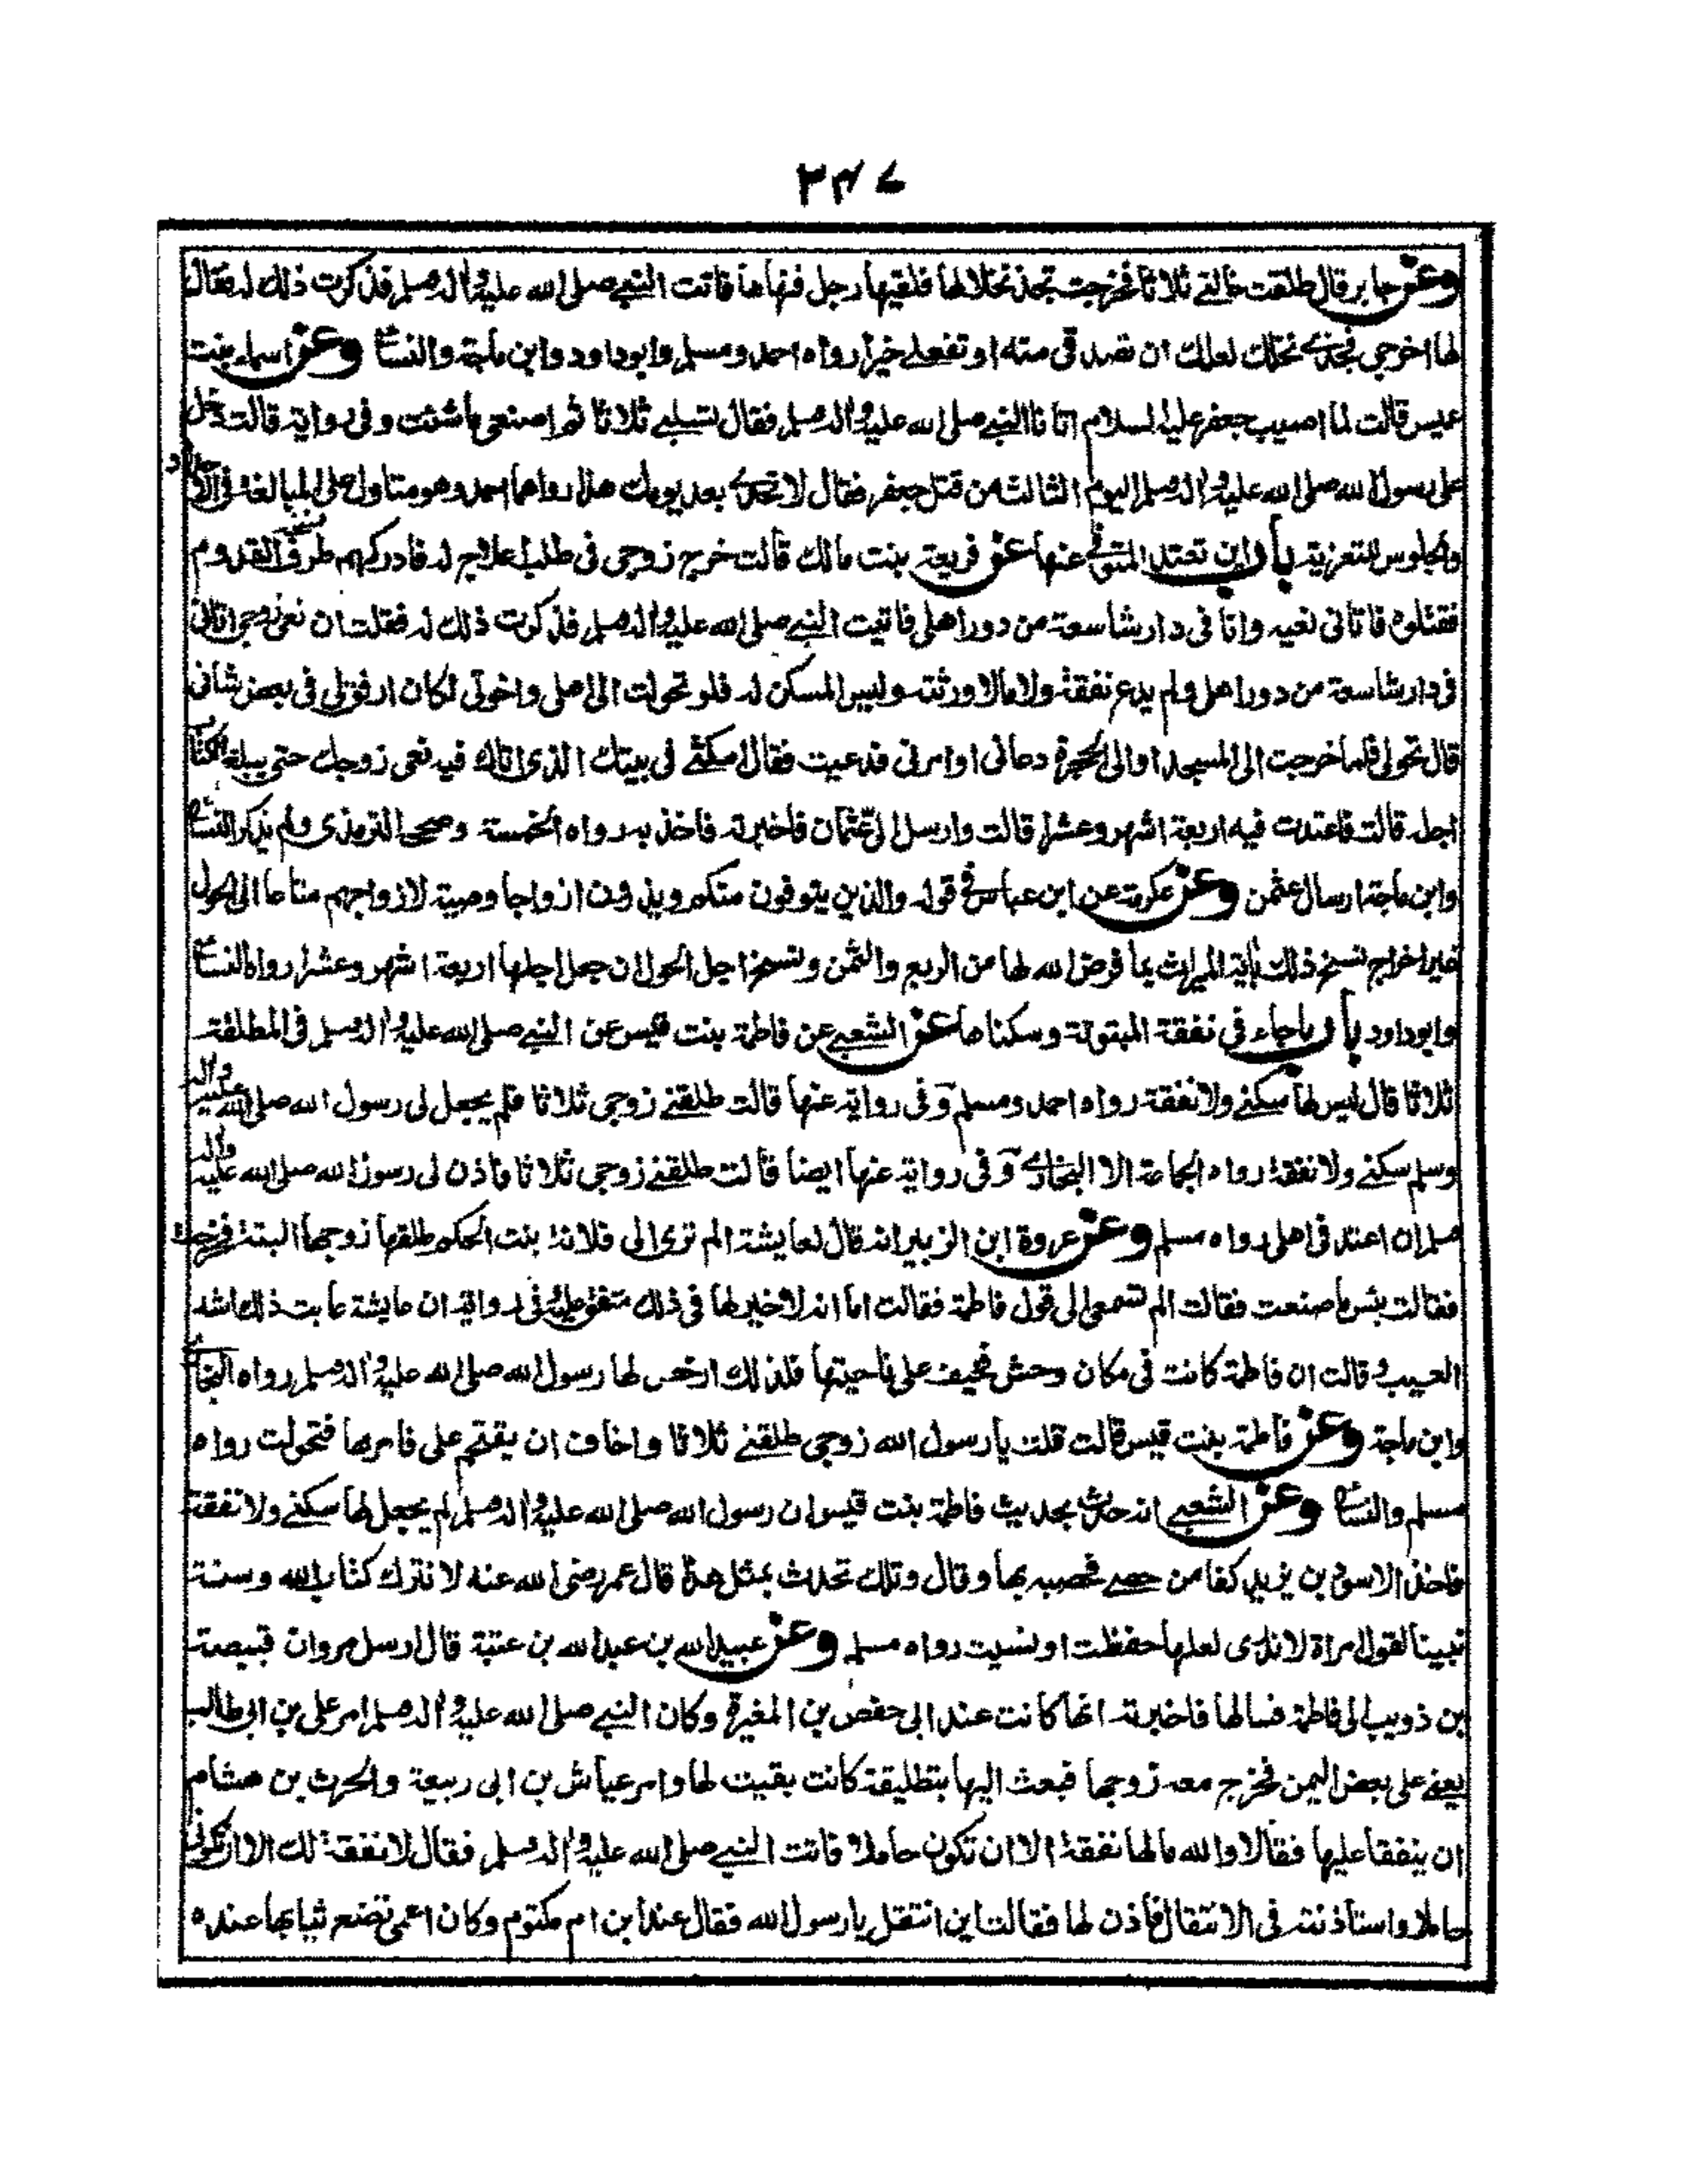 ٣٤٧
وعن جابر قال طلقت خالتي ثلاثا فخرجت تجذ نخلا لها فلقيها رجل فنهاها فاتت النبي صلى الله عليه واله وسلم فذكرت ذلك له فقال
لها اخرجي فجذي نخلك لعلك ان تصدقي منه او تفعلي خيرا رواه احمد ومسلم وابو داود وابن ماجة والنسائي وعن اسماء بنت
عميس قالت لما اصيب جعفر عليه السلام اتانا النبي صلى الله عليه واله وسلم فقال تسلبي ثلاثا ثم اصنعي ما شئت وفي رواية قالت دخل
على رسول الله صلى الله عليه واله وسلم اليوم الثالث من قتل جعفر فقال لا تحدي بعد يومك هذا رواهما احمد وهو متاول على المبالغة في الاحداد
والجلوس للتعزية باب اين تعتد المتوفى عنها عن فريعة بنت مالك قالت خرج زوجي في طلب اعلاج له فادركهم بطرف القدوم
فقتلوه فاتاني نعيه وانا في دار شاسعة من دور اهلي فاتيت النبي صلى الله عليه واله وسلم فذكرت ذلك له فقلت ان نعي زوجي اتاني
في دار شاسعة من دور اهلي ولم يدع نفقة ولا مالا ورثته وليس المسكن له فلو تحولت الى اهلي واخوتي لكان ارفق لي في بعض شاني
قال تحولي فلما خرجت الى المسجد او الى الحجرة دعاني او امر بي فدعيت فقال امكثي في بيتك الذي اتاك فيه نعي زوجك حتى يبلغ الكتاب
اجله قالت فاعتدت فيه اربعة اشهر وعشرا قالت وارسل الي عثمان فاخبرته فاخذ به رواه الخمسة وصححه الترمذي ولم يذكر النسائي
وابن ماجة ارسال عثمن وعن عكرمة عن ابن عباس في قوله والذين يتوفون منكم ويذرون ازواجا وصية لازواجهم متاعا الى الحول
غير اخراج نسخ ذلك باية الميراث بما فرض الله لها من الربع والثمن ونسخ اجل الحول ان جعل اجلها اربعة اشهر وعشرا رواه النسائي
وابو داود باب ما جاء في نفقة المبتوتة وسكناها عن الشعبي عن فاطمة بنت قيس عن النبي صلى الله عليه واله وسلم في المطلقة
ثلاثا قال ليس لها سكنى ولا نفقة رواه احمد ومسلم وفي رواية عنها قالت طلقني زوجي ثلاثا فلم يجعل لي رسول الله صلى الله عليه واله
وسلم سكنى ولا نفقة رواه الجماعة الا البخاري وفي رواية عنها ايضا قالت طلقني زوجي ثلاثا فاذن لي رسول الله صلى الله عليه واله
وسلم ان اعتد في اهلي رواه مسلم وعن عروة ابن الزبير انه قال لعايشة الم تري الى فلانة بنت الحكم طلقها زوجها البتة فخرجت
فقالت بئس ما صنعت فقالت الم تسمعي الى قول فاطمة فقالت اما انه لا خير لها في ذلك متفق عليه وفي رواية ان عايشة عابت ذلك اشد
العيب وقالت ان فاطمة كانت في مكان وحش فخيف على ناحيتها فلذلك ارخص لها رسول الله صلى الله عليه واله وسلم رواه البخاري
وابن ماجة وعن فاطمة بنت قيس قالت قلت يا رسول الله زوجي طلقني ثلاثا واخاف ان يقتحم علي فامرها فتحولت رواه
مسلم والنسائي وعن الشعبي انه حدث بحديث فاطمة بنت قيس ان رسول الله صلى الله عليه واله وسلم لم يجعل لها سكنى ولا نفقة
فاخذ الاسود بن يزيد كفا من حصى فحصبه بها وقال ويلك تحدث بمثل هذا قال عمر رضي الله عنه لا نترك كتاب الله وسنة
نبينا لقول امراة لا ندري لعلها حفظت او نسيت رواه مسلم وعن عبيد الله بن عبد الله بن عتبة قال ارسل مروان قبيصة
بن ذويب الى فاطمة فسالها فاخبرته انها كانت عند ابي حفص بن المغيرة وكان النبي صلى الله عليه واله وسلم امر علي بن ابي طالب
يعني على بعض اليمن فخرج معه زوجها فبعث اليها بتطليقة كانت بقيت لها وامر عياش بن ابي ربيعة والحرث بن هشام
ان ينفقا عليها فقالا والله ما لها نفقة الا ان تكون حاملا فاتت النبي صلى الله عليه واله وسلم فقال لا نفقة لك الا ان تكوني
حاملا واستاذنته في الانتقال فأذن لها فقالت اين انتقل يا رسول الله فقال عند ابن ام مكتوم وكان اعمى تضع ثيابها عنده